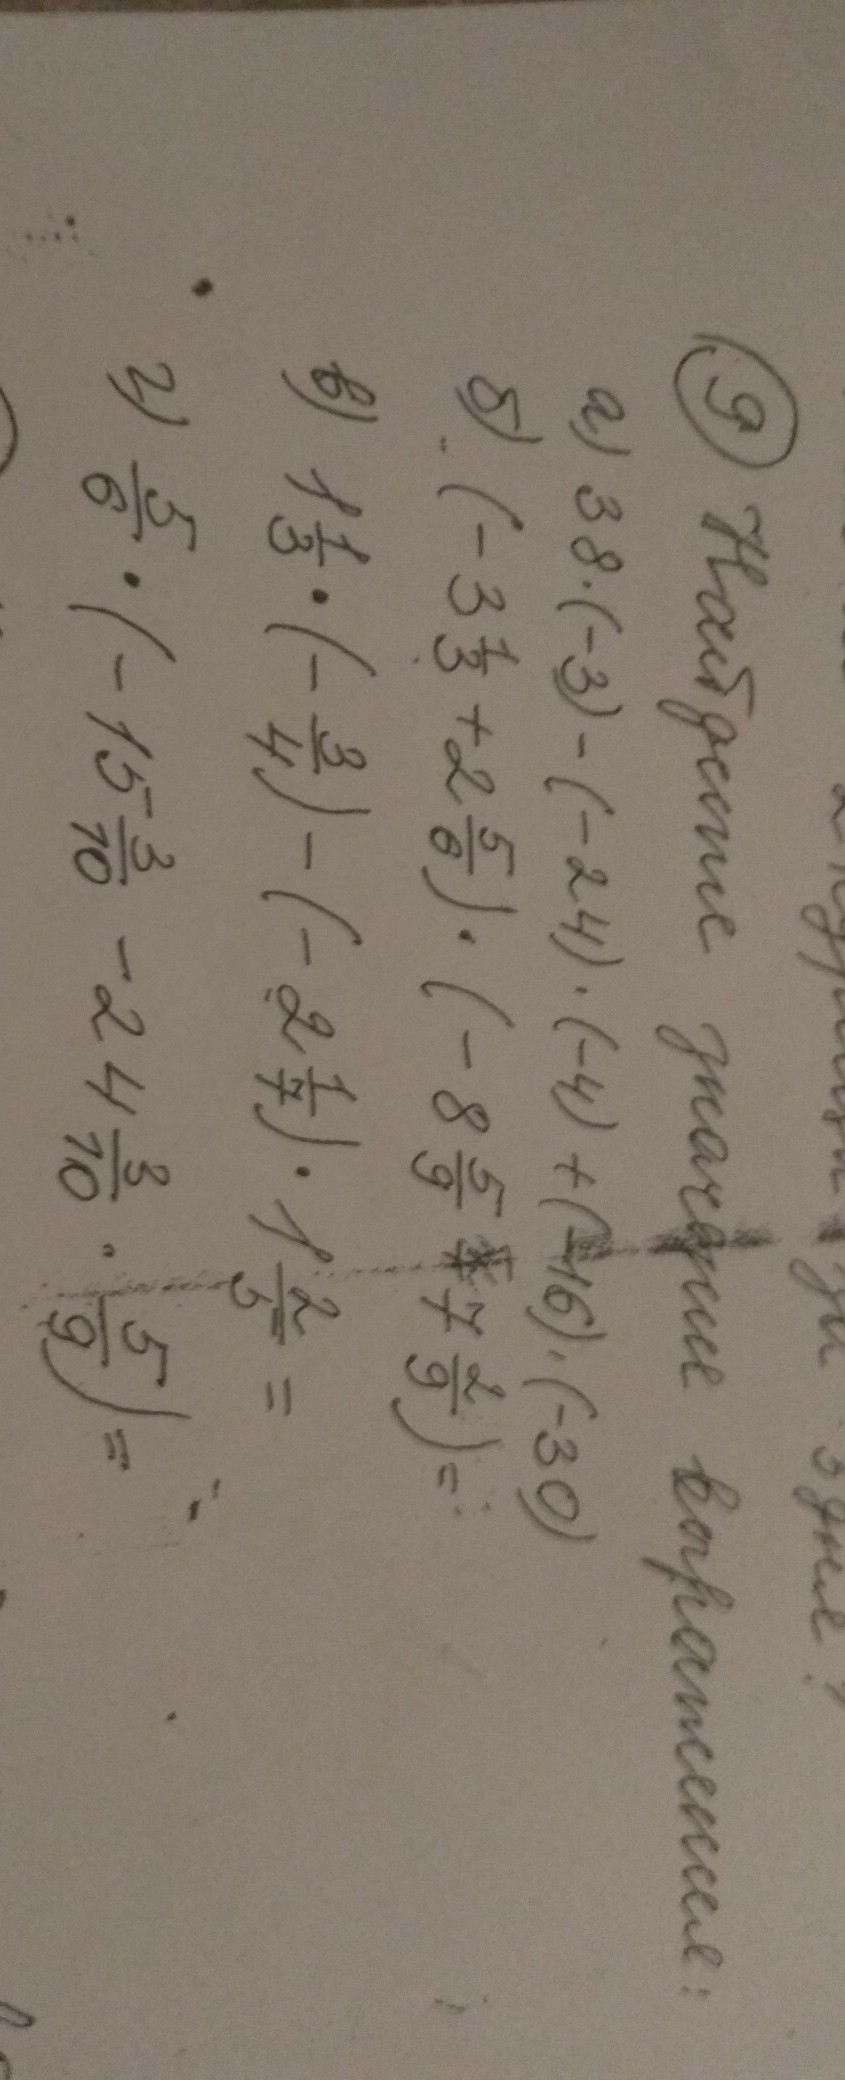 9 Найдите значение выражения:
а) 38·(-3)-(-24)·(-4)+(-16)·(-30)
б) (-3 1/3 + 2 5/6)·(-8 5/9 + 7 2/9)=
в) 1 1/3 · (-3/4) - (-2 1/7) · 1 2/5 =
г) 5/6 · (-15 3/10 - 24 3/10 · 5/9) =